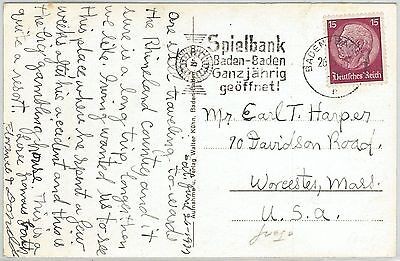 June
are still traveling toward
the Rhineland country and it
sure is a long trip, longer than
we like. Irving wanted us to see
this place where he spent a few
weeks after his accident and this is
the big gambling house. This is
quite a resort.
Love from us both
Aufnahme u. Verlag Walter Kühn, Baden-Baden
Spielbank
Baden-Baden
Ganzjährig
geöffnet!
BADEN
26
15 15
Deutsches Reich
Mr. Carl T. Harper
70 Davidson Road
Worcester, Mass.
U.S.A.